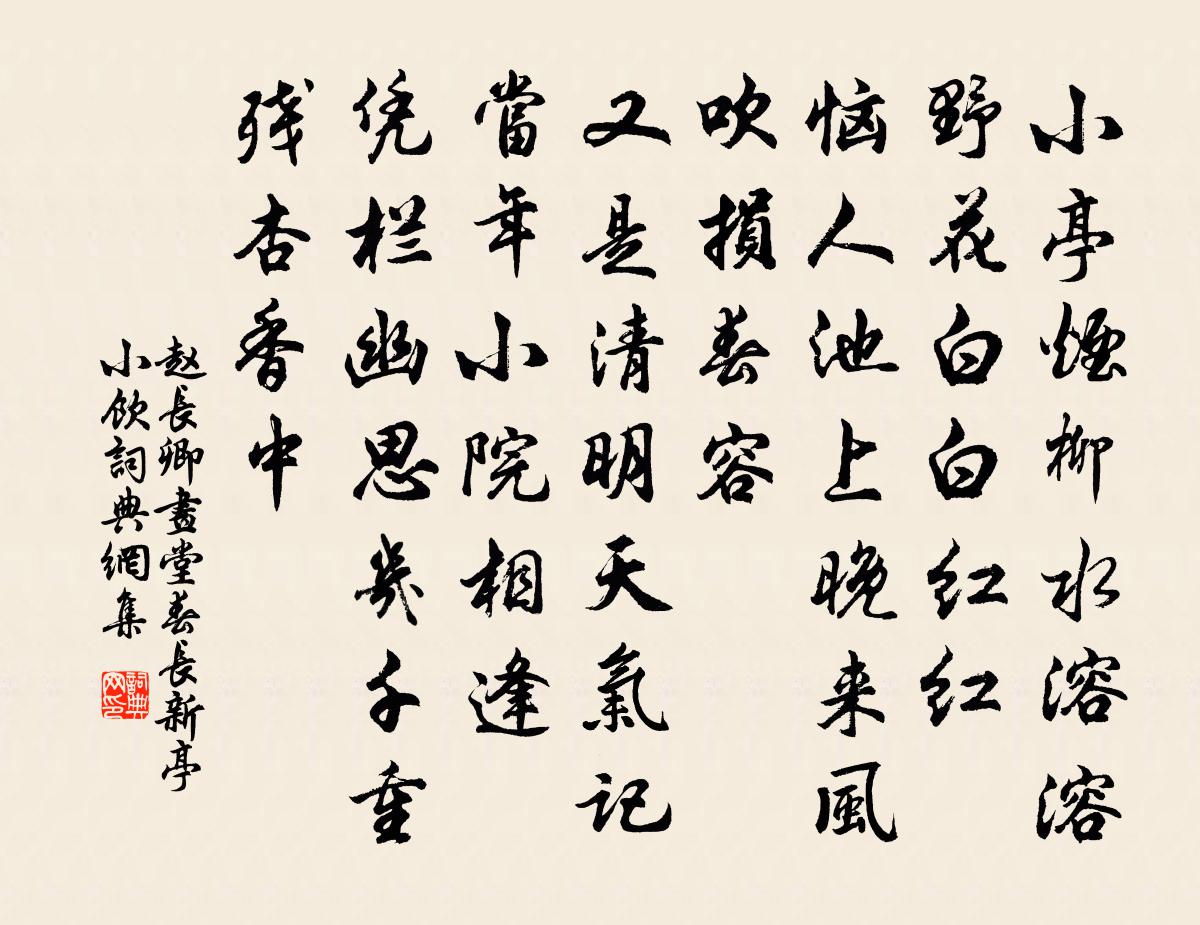 小亭煙柳水溶溶
野花白白红红
恼人池上晚来風
吹損春容
又是清明天氣記
當年小院相逢
凭栏幽思幾千重
残杏香中
赵長卿畫堂春長新亭
小飲詞典網集
詞典网印